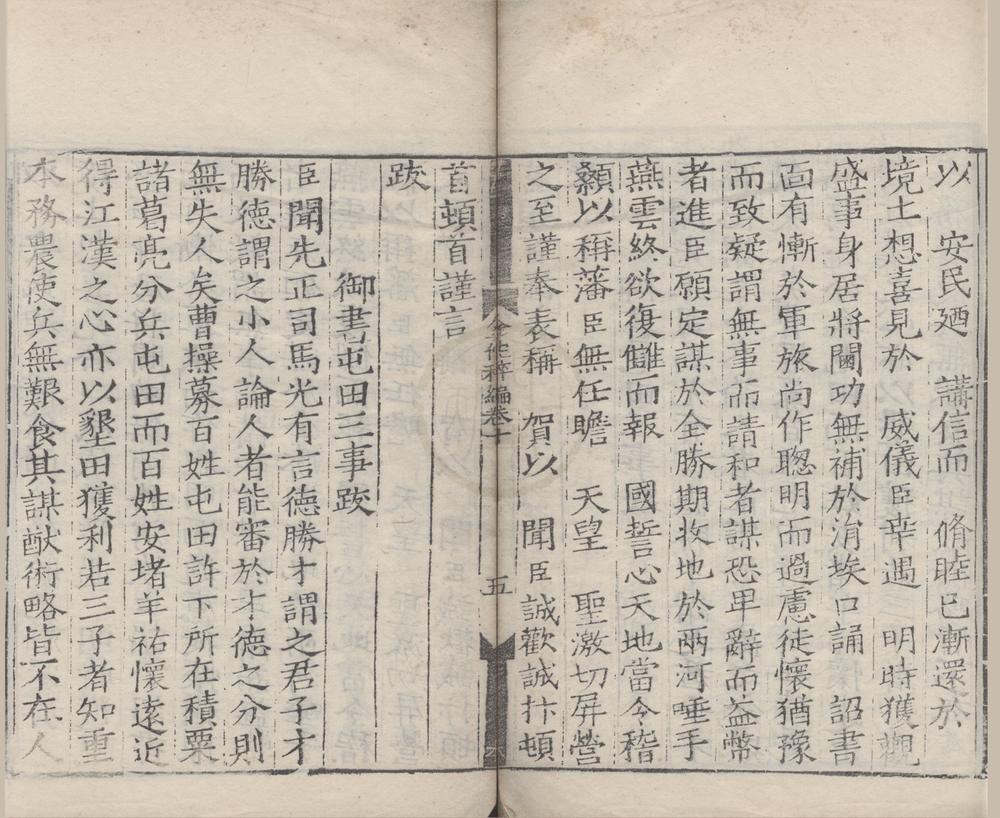 以　安民廼　講信而　脩睦已漸還於
境土想喜見於　威儀臣幸遇　明時獲觀
盛事身居將閫功無補於涓埃口誦　詔書
面有慚於軍旅尚作聦明而過慮徒懷猶豫
而致疑謂無事而請和者謀恐卑辭而益幣
者進臣願定謀於全勝期收地於兩河唾手
燕雲終欲復讎而報　國誓心天地當令稽
顙以稱藩臣無任瞻　天皇　聖激切屏營
之至謹奉表稱　賀以　聞臣誠歡誠抃頓
首頓首謹言
金佗稡編卷十
五
六
跋
御書屯田三事跋
臣聞先正司馬光有言德勝才謂之君子才
勝德謂之小人論人者能審於才德之分則
無失人矣曹操募百姓屯田許下所在積粟
諸葛亮分兵屯田而百姓安堵羊祜懷遠近
得江漢之心亦以墾田獲利若三子者知重
本務農使兵無艱食其謀猷術略皆不在人